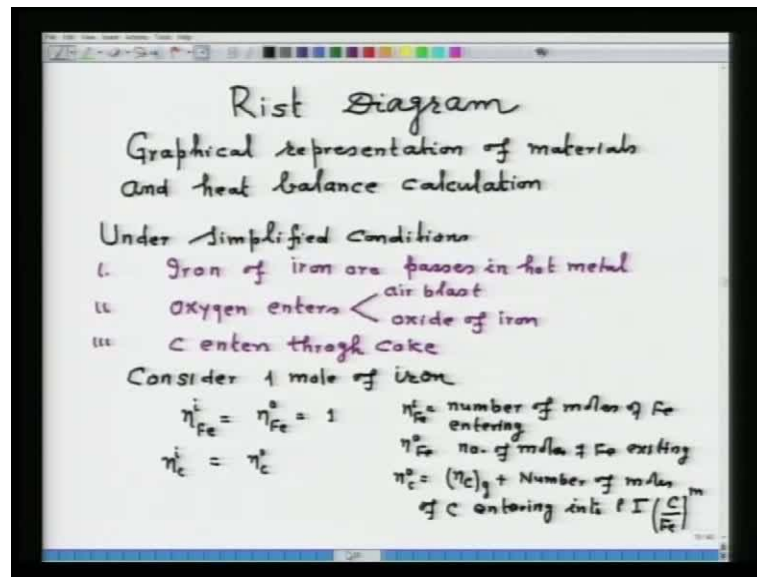 Rist Diagram
Graphical representation of materials
and heat balance calculation
Under simplified conditions
i. Iron of iron ore passes in hot metal
ii oxygen enters < air blast
oxide of iron
iii C enters throgh coke
Consider 1 mole of iron
η^i_Fe = η^o_Fe = 1
η^i_c = η^o_c
η^i_Fe = number of moles of Fe
entering
η^o_Fe no. of moles of Fe existing
η^o_c = (η_c)_g + Number of moles
of C entering into P I (C/Fe)^m